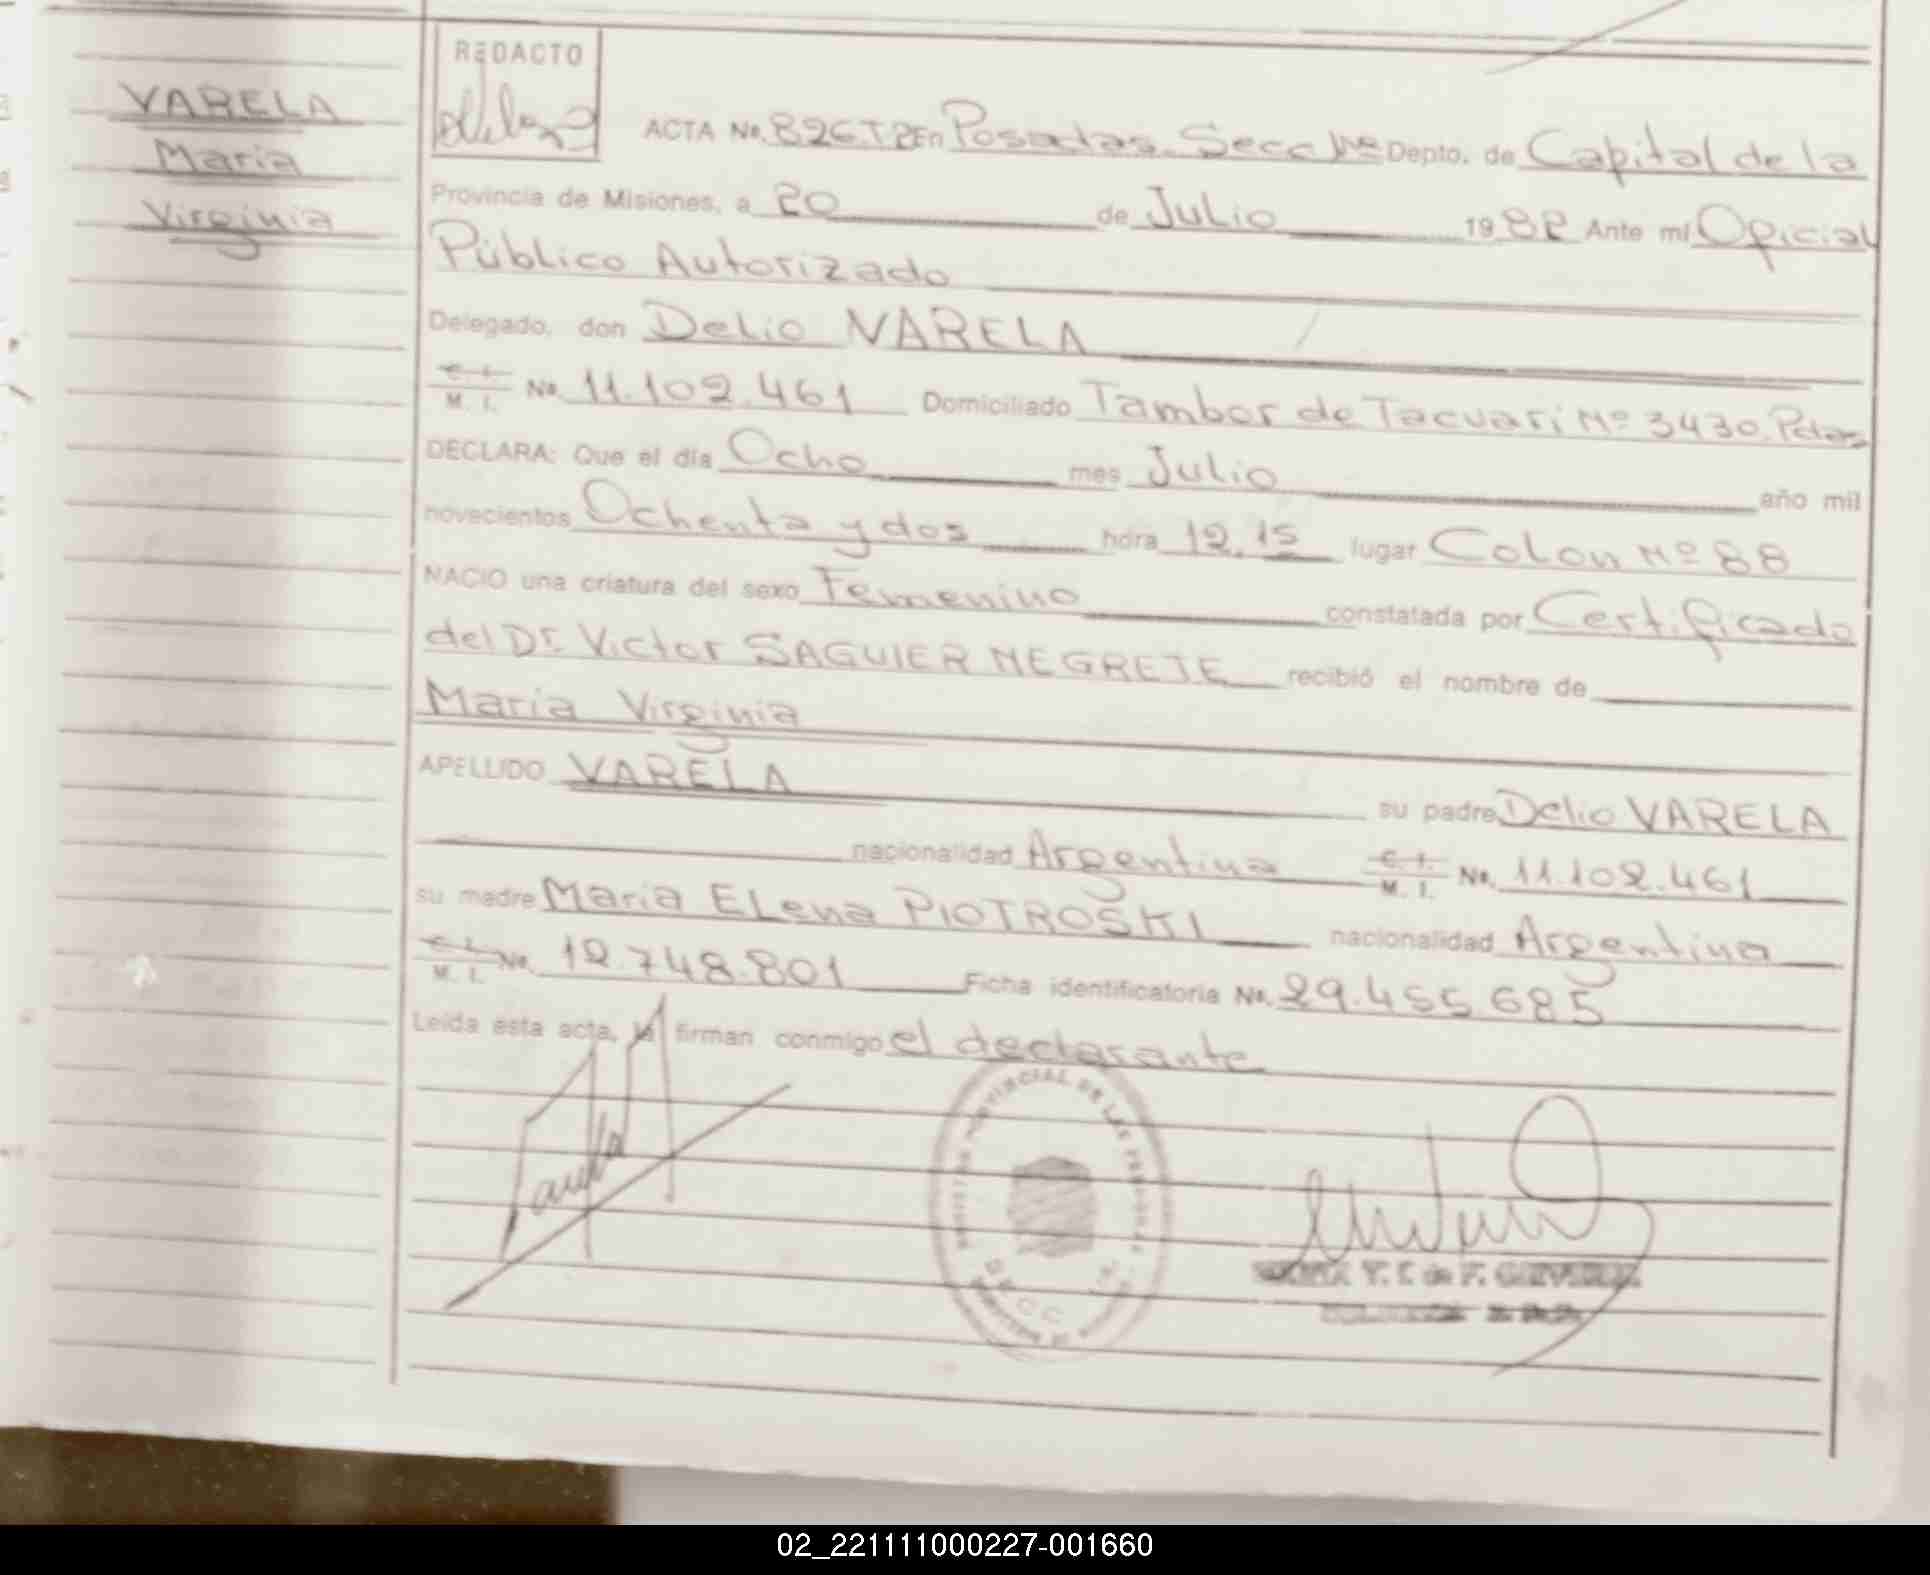 VARELA
Maria
Virginia
REDACTO
ACTA No. 826.T2 En Posadas. Secc 1ra Depto. de Capital de la
Provincia de Misiones, a 20 de Julio 1982 Ante mi Oficial
Público Autorizado
Delegado, don Delio VARELA
C. I.
M. I. No. 11.102.461 Domiciliado Tambor de Tacuari Nº 3430. Pdas
DECLARA: Que el día Ocho mes Julio año mil
novecientos Ochenta y dos hora 12.15 lugar Colon Nº 88
NACIO una criatura del sexo Femenino constatada por Certificado
del Dr. Victor SAGUIER NEGRETE recibió el nombre de
Maria Virginia
APELLIDO VARELA su padre Delio VARELA
nacionalidad Argentina C. I.
M. I. No. 11.102.461
su madre Maria Elena PIOTROSKI nacionalidad Argentina
C. I.
M. I. No. 12.748.801 Ficha identificatoria No. 29.455.685
Leída esta acta, la firman conmigo el declarante
02_221111000227-001660